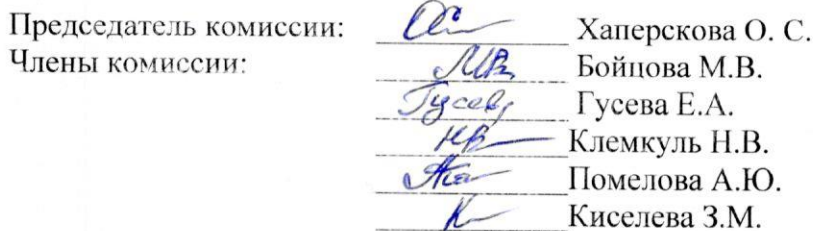 Председатель комиссии: Хаперскова О. С.
Члены комиссии: Бойцова М.В.
Гусев Гусева Е.А.
Клемкуль Н.В.
Помелова А.Ю.
Киселева З.М.